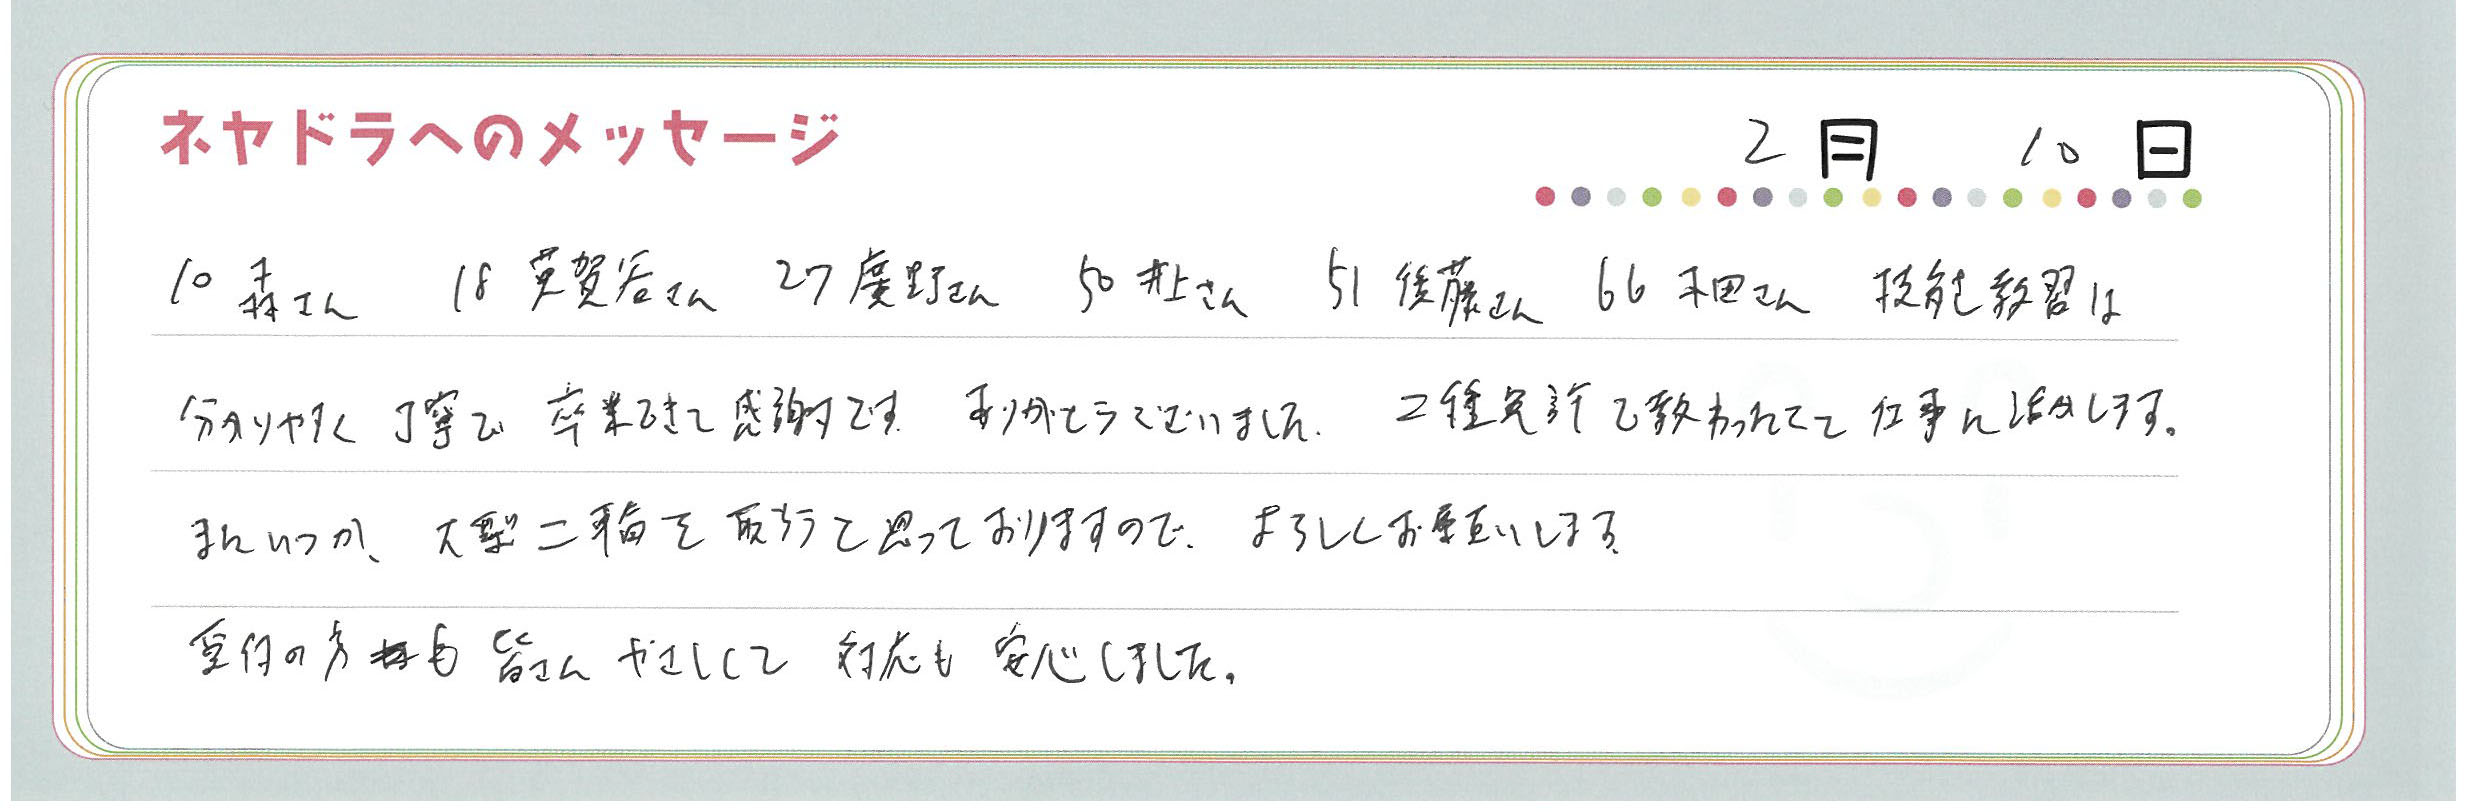 ネヤドラへのメッセージ
2月 10日
10 森さん 18 英賀谷さん 27 廣野さん 50 井上さん 51 後藤さん 66 本田さん 技能教習は
分かりやすく 丁寧で 卒業できて感謝です ありがとうございました. 二種免許で教わったこと 仕事に活かします。
またいつか、大型二輪を取ろうと思っておりますので、よろしくお願いします
受付の方も 皆さん やさしくて 対応も 安心しました。